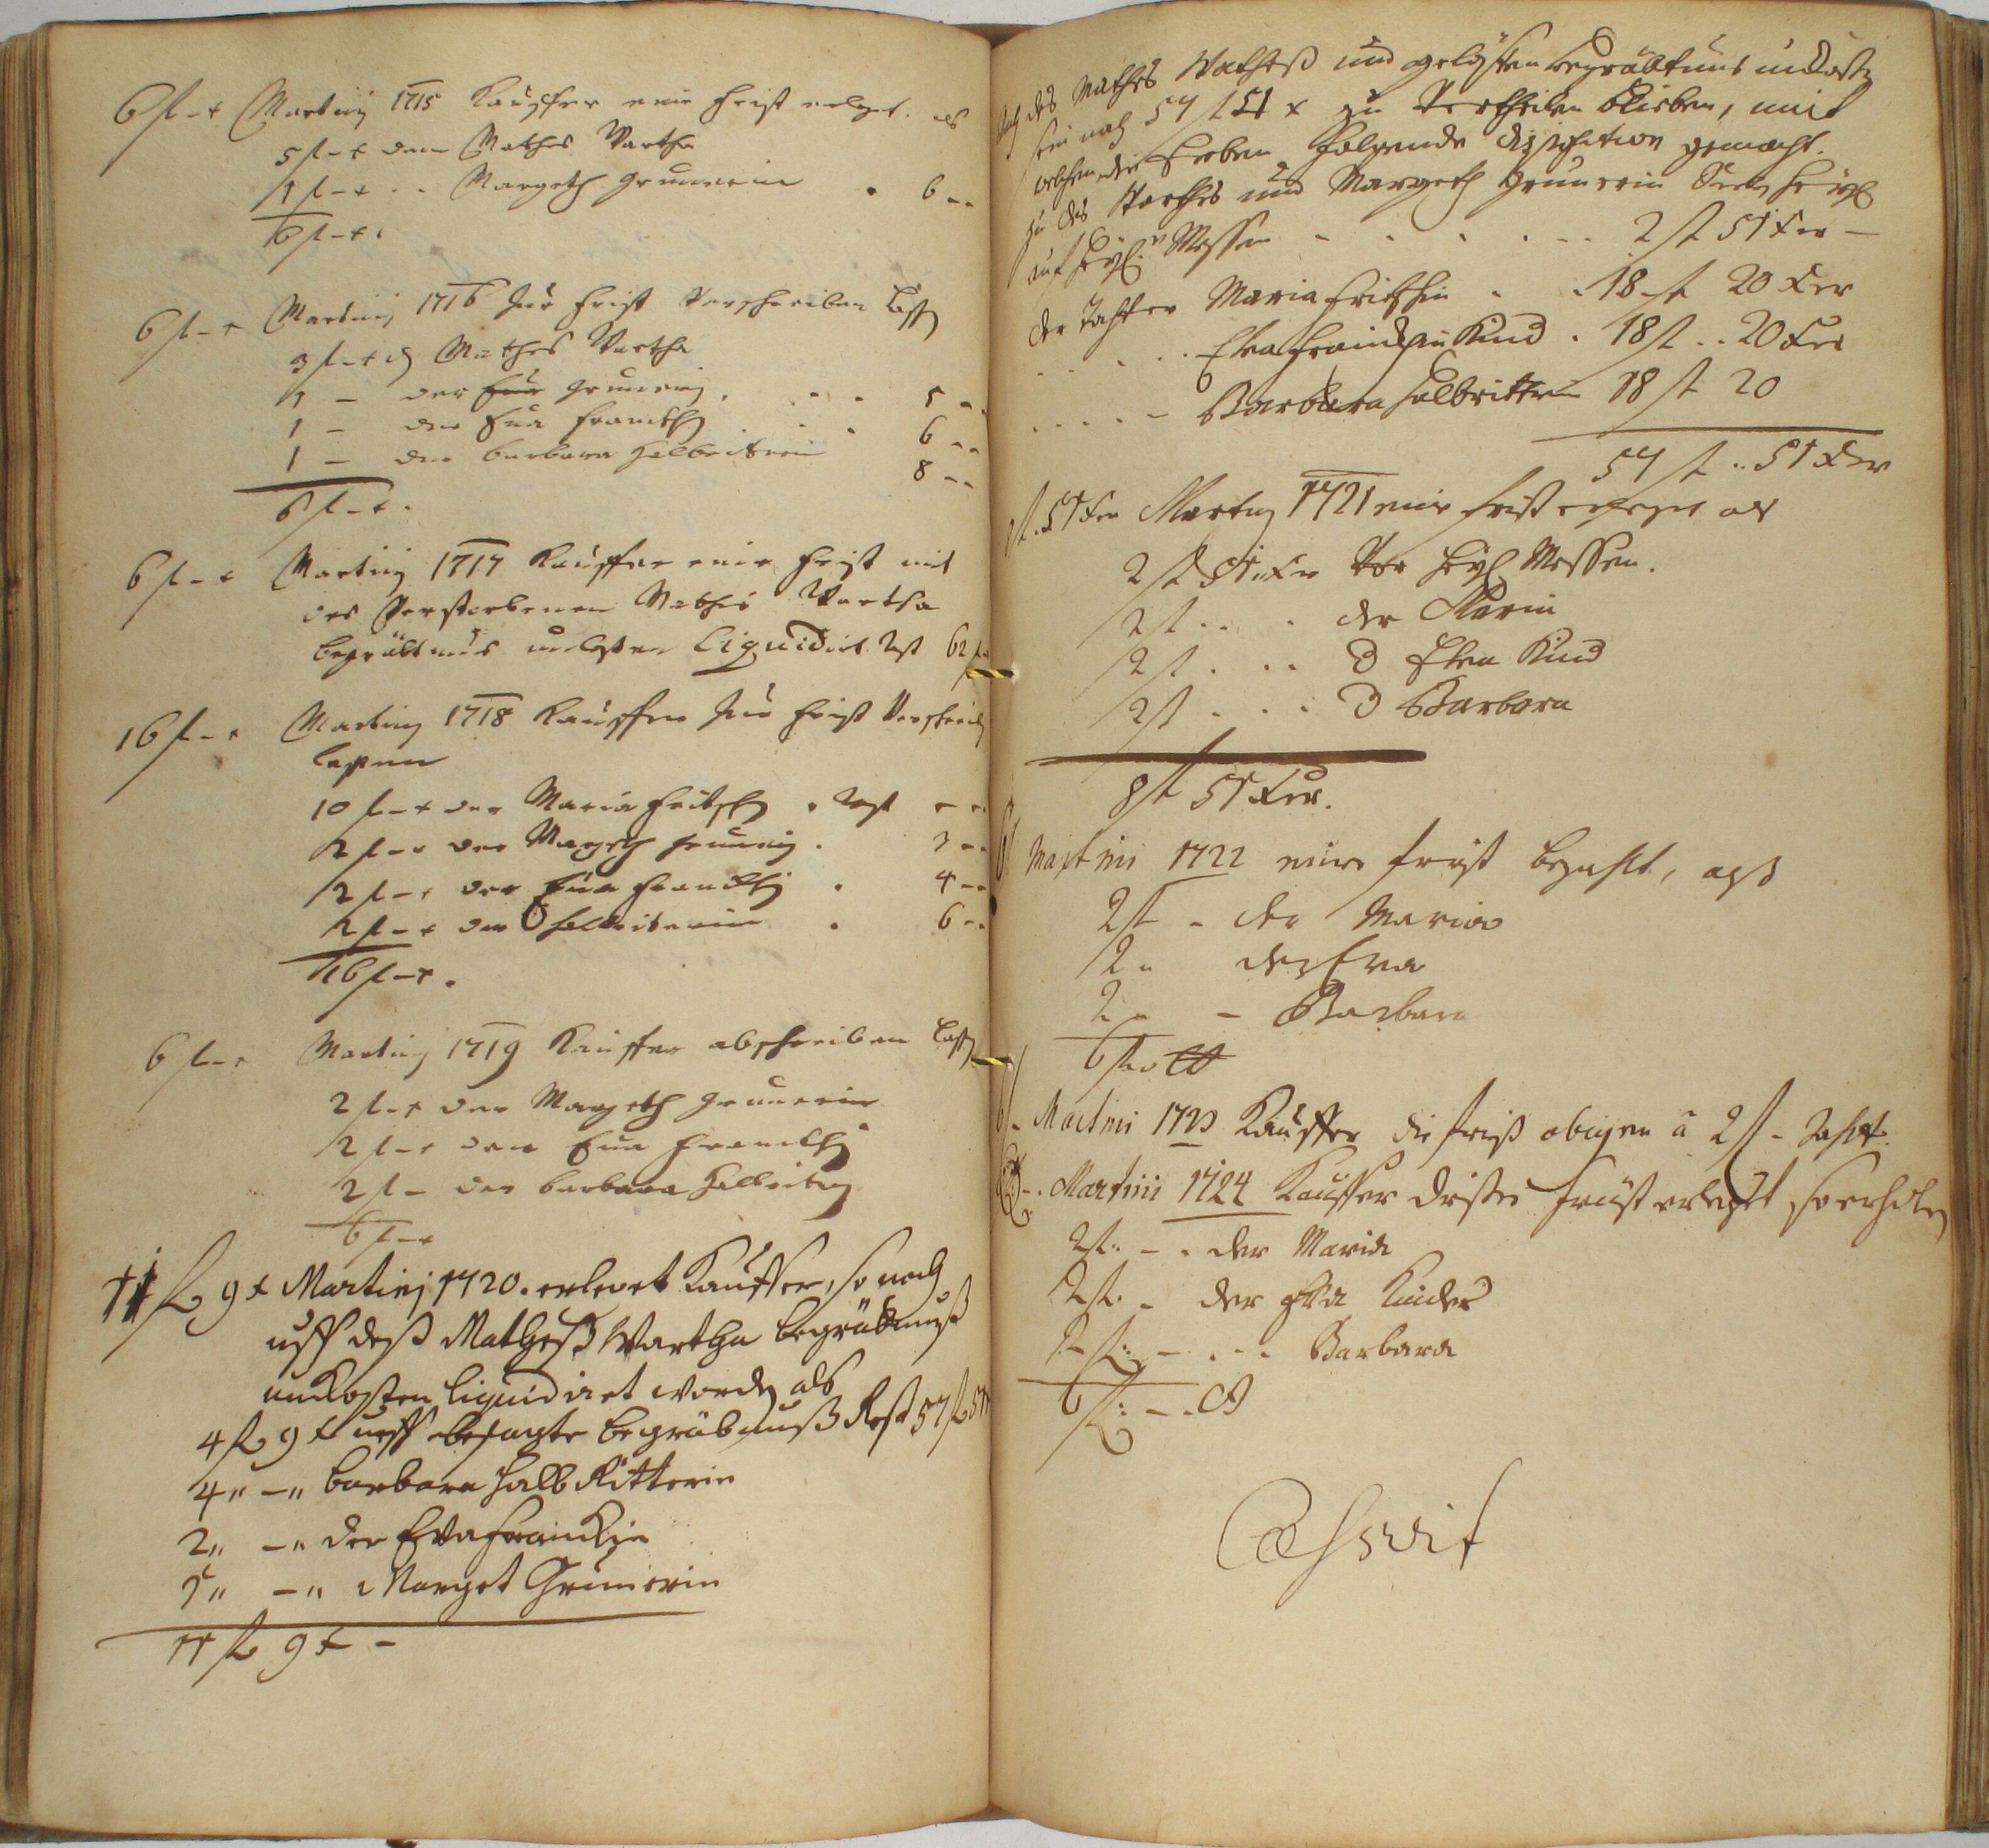 6 f – x Martinj 1715 Kauffer eine frist erlegt. als
5 f – x dem Mathes Wartha
1 f – x . . Margeth Grunerin . 6 – –
6 f – x .
6 f – x Martinj 1716 zur frist verschreiben lassen
3 f – x d Mathes Wartha
1 – der Grunerin . . . 5 – –
1 – der Eua Franckin . . 6 – –
1 – der barbara Halbritterin 8 – –
6 f – x .
6 f – x Martinj 1717 Kauffer eine frist mit
des Verstorbenen Mathes Wartha
begräbtnus unkosten Liquidirt Rest 62 f
16 f – x Martinj 1718 Kauffer zur frist Verschreiben
lassen
10 f – x der Maria Fritschin . Rest – –
2 f – x der Margeth Grunerin . 3 – –
2 f – x der Eua Franckin . 4 – –
2 f – x der Halbritterin . 6 – –
16 f – x .
6 f – x Martinj 1719 Kauffer abschreiben lassen
2 f – x der Margeth Grunerin
2 f – x der Eua Franckin
2 f – der barbara Halbritterin
6 f – x
11 f 9 x Martinj 1720. erleget Kauffer, so nach
uff deß Matheß Wartha begräbnuß
unkosten liquidiret worden als
4 f 9 x uff besagte begräbnuß Rest 57 f 51
4 " – " barbara Halb Ritterin
2 " – " der Eva Franckin
1 " – " Marget Grunerin
11 f 9 x –
des Mathes Wartheß und begräbtnus unkosten
sein noch 57 f 51 x zu Vertheilen blieben, mit
welchen die Erben folgende disposition gemacht.
zu des Warthes und Margeth Grunerin Seelen Heyl
auf Heyl. Messen . . . . . 2 f 51 xer –
der Tochter Maria Fritschin . . 18 f 20 xer
. . . . Eva Franckin Kind . 18 f . . 20 xer
. . . . – Barbara Halbritterin 18 f 20
57 f . . 51 xer
8 f. 51 xer Martinj 1721 eine frist erleget als
2 f 51 " xer Vor Heyl Messen.
2 f . . . der Maria
2 f . . . d Eva Kind
2 f . . . d Barbara
8 f 51 xer.
6 f Martini 1722 eine frist bezahlt, alß
2 f – der Maria
2 " der Eva
2 " – Barbara
6 f
6 f – Martini 1723 Kauffer die frist obigen a 2 f – zahlt
6 f – . Martini 1724 Kauffer dieße frist erlegt, so erhalten
2 f. – . der Maria
2 f. – der Eva Kinder
2 f. – . . – Barbara
6 f. – .
Cessavit